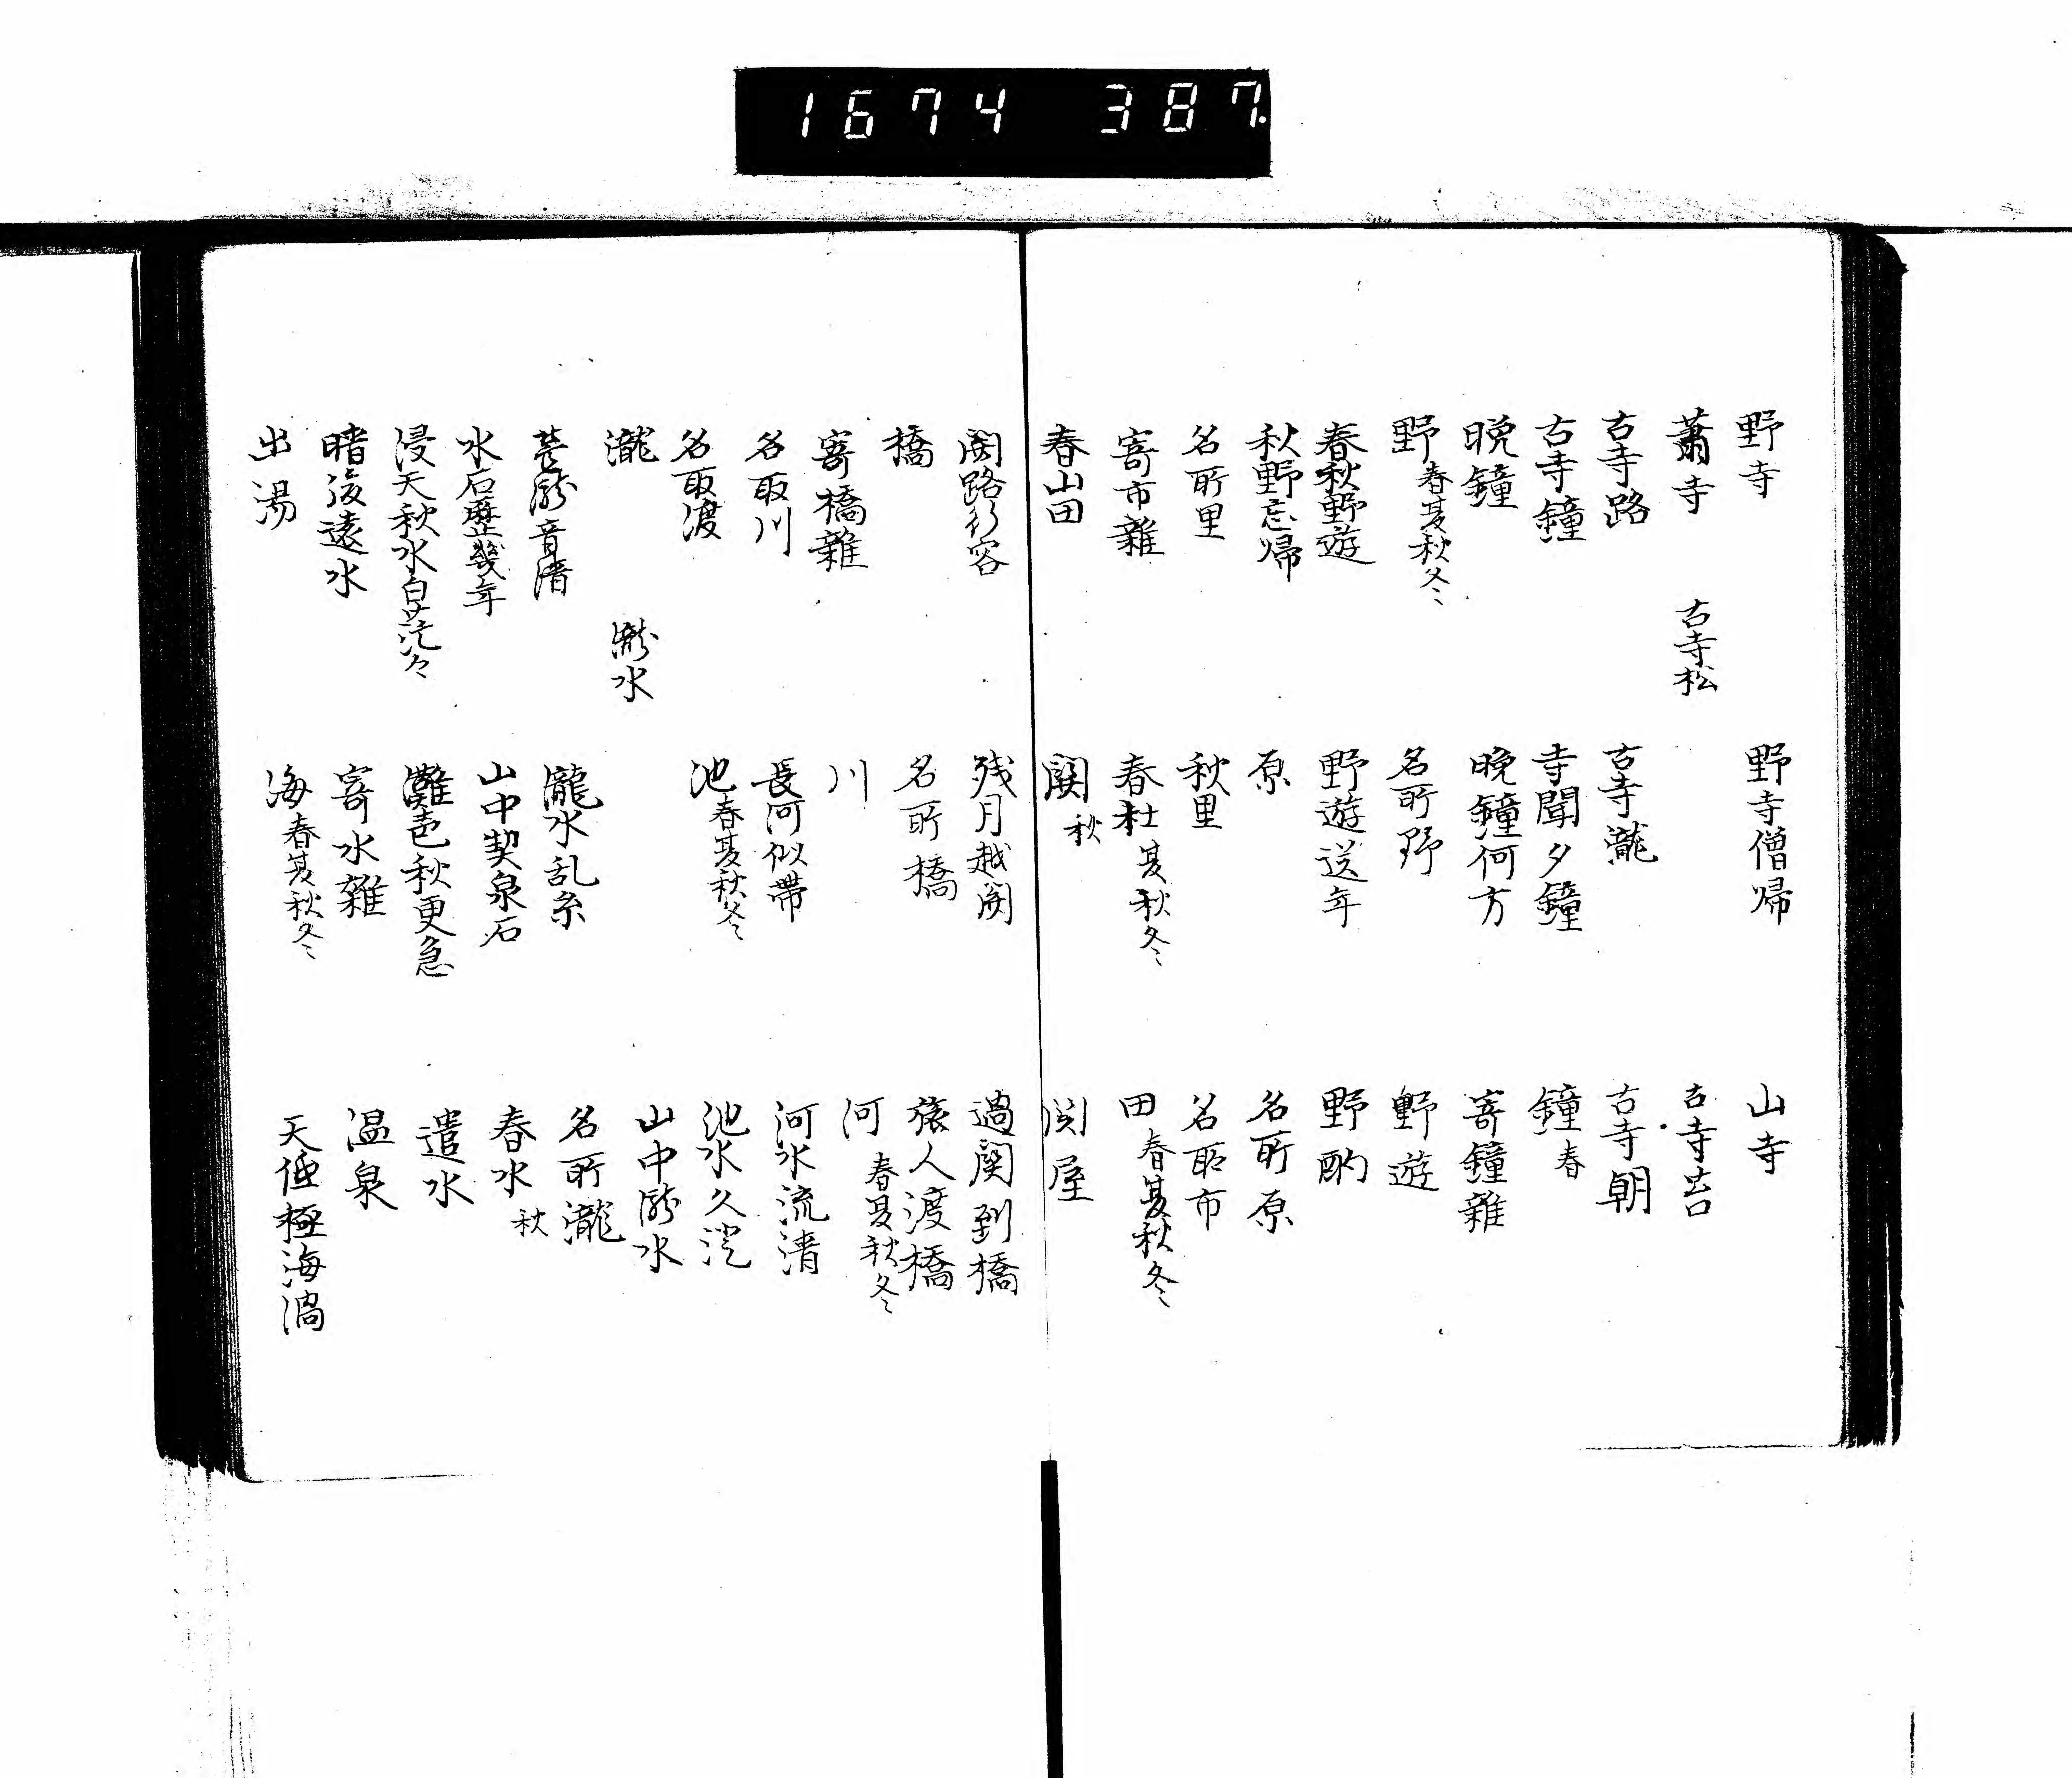 1674 387.
野寺 野寺僧帰 山寺
蕭寺 古寺松 古寺苔
古寺路 古寺瀧 古寺朝
古寺鐘 寺聞夕鐘 鐘春
晩鐘 晩鐘何方 寄鐘雑
野春夏秋冬 名所野 野遊
春秋野遊 野遊送年 野酌
秋野忘帰 原 名所原
名所里 秋里 名所市
寄市雑 春杜夏秋冬 田春夏秋冬
春山田 関秋 関屋
関路行客 残月越関 過関到橋
橋 名所橋 旅人渡橋
寄橋雑 川 河春夏秋冬
名取川 長河似帯 河水流清
名取渡 池春夏秋冬 池水久澄
瀧 瀧水 山中瀧水
瀧音清 瀧水乱糸 名所瀧
水石歴幾年 山中契泉石 春水秋
浸天秋水白茫々 灘声秋更急 遣水
晴後遠水 寄水雑 温泉
出湯 海春夏秋冬 天低極海